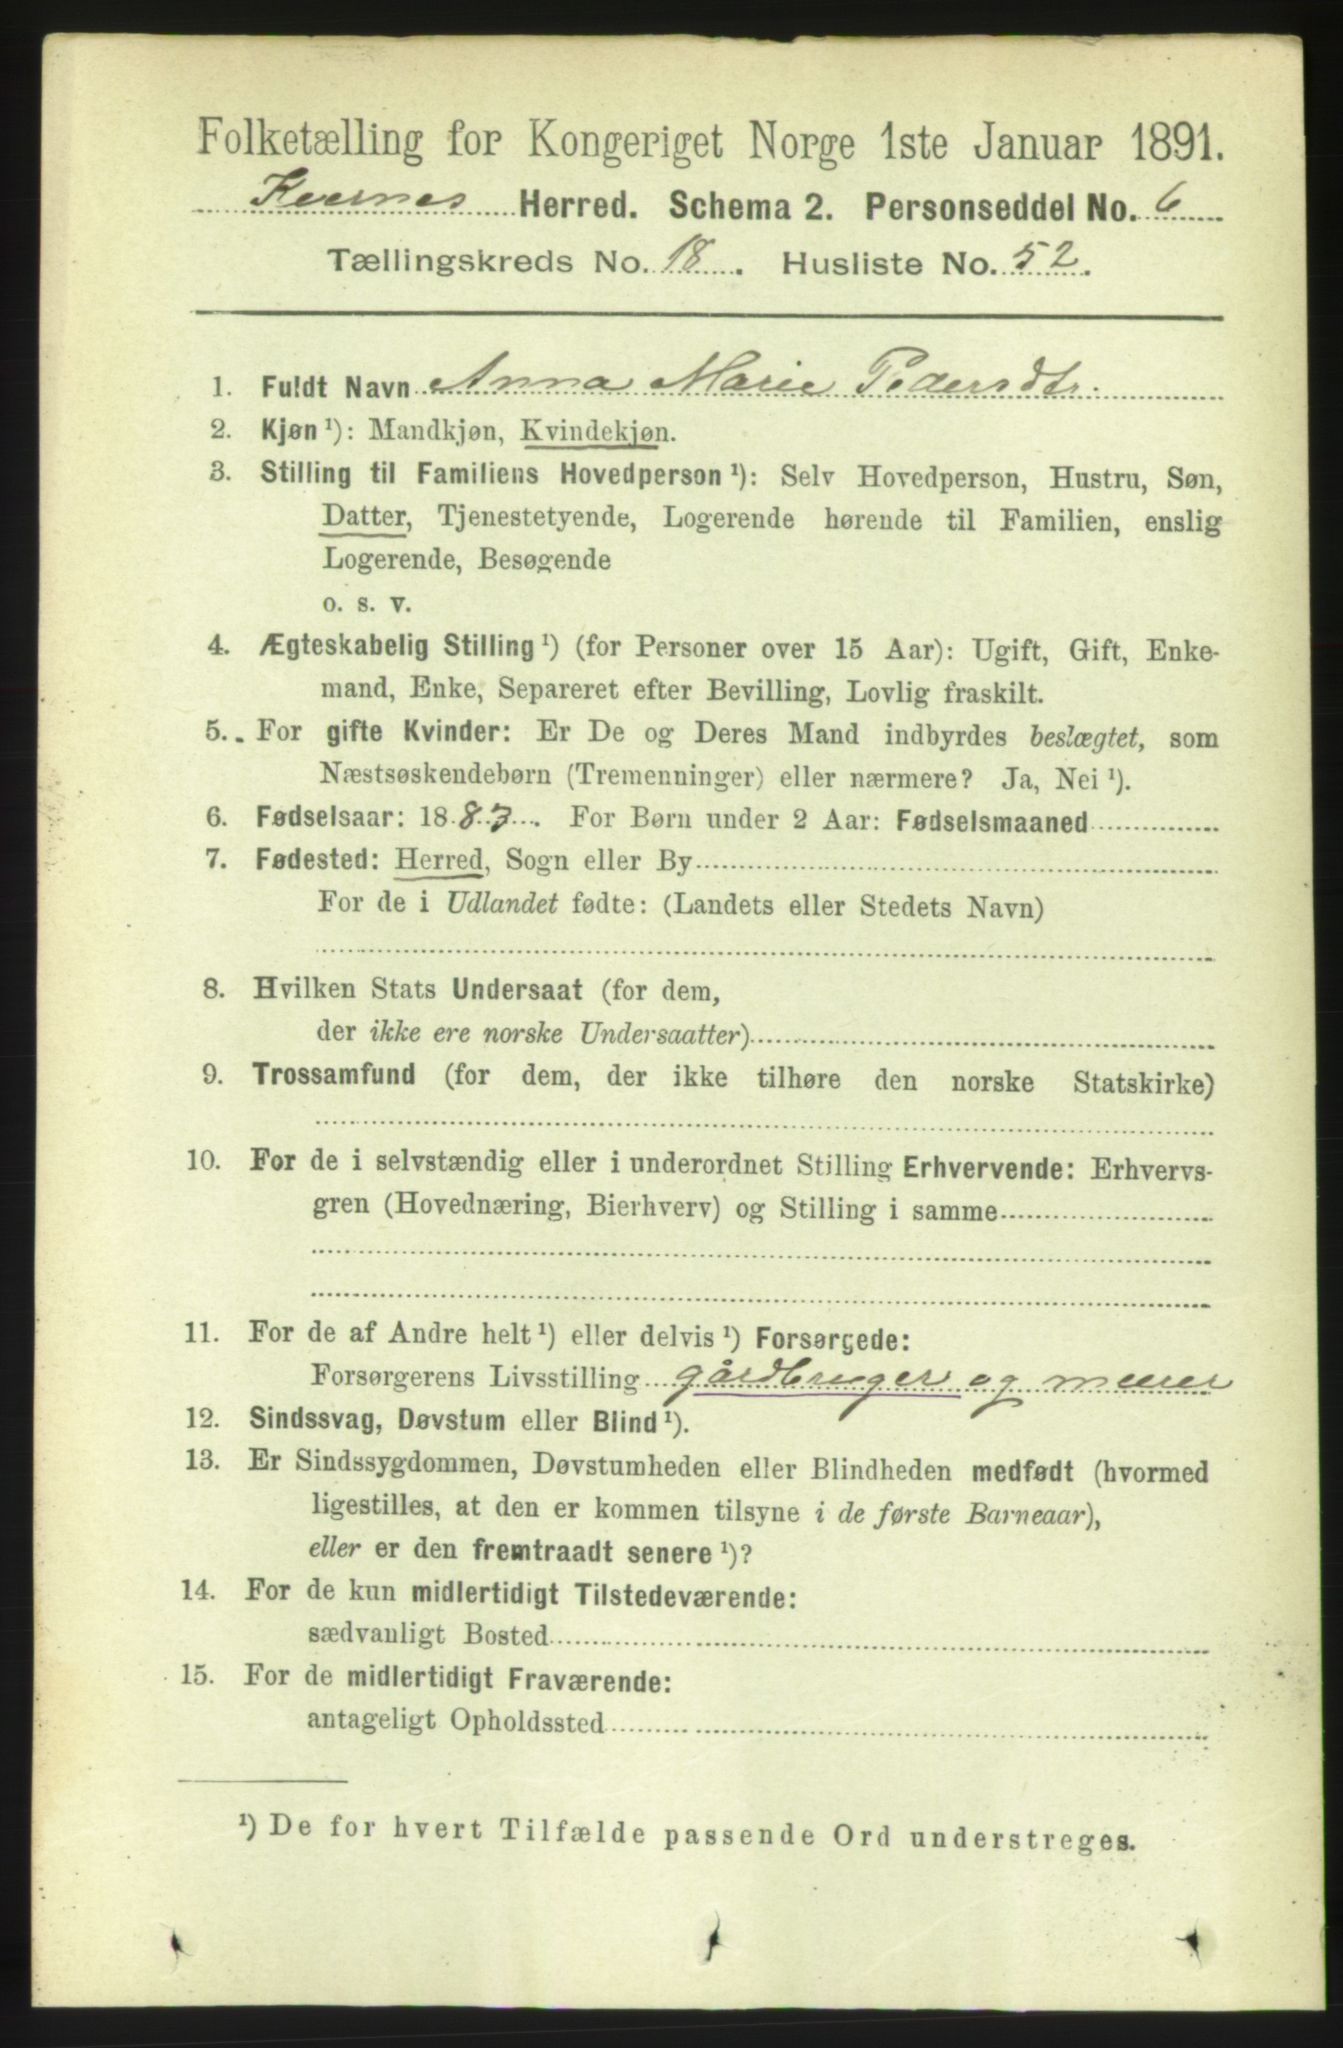 Folketælling for Kongeriget Norge 1ste Januar 1891.
Kvernes Herred. Schema 2. Personseddel No. 6
Tællingskreds No. 18. Husliste No. 52.
1. Fuldt Navn Anna Marie Pedersdtr.
2. Kjøn ¹): Mandkjøn, Kvindekjøn.
3. Stilling til Familiens Hovedperson ¹): Selv Hovedperson, Hustru, Søn,
Datter, Tjenestetyende, Logerende hørende til Familien, enslig
Logerende, Besøgende
o. s. v.
4. Ægteskabelig Stilling ¹) (for Personer over 15 Aar): Ugift, Gift, Enke-
mand, Enke, Separeret efter Bevilling, Lovlig fraskilt.
5. For gifte Kvinder: Er De og Deres Mand indbyrdes beslægtet, som
Næstsøskendebørn (Tremenninger) eller nærmere? Ja, Nei ¹).
6. Fødselsaar: 1883. For Børn under 2 Aar: Fødselsmaaned
7. Fødested: Herred, Sogn eller By
For de i Udlandet fødte: (Landets eller Stedets Navn)
8. Hvilken Stats Undersaat (for dem,
der ikke ere norske Undersaatter)
9. Trossamfund (for dem, der ikke tilhøre den norske Statskirke)
10. For de i selvstændig eller i underordnet Stilling Erhvervende: Erhvervs-
gren (Hovednæring, Bierhverv) og Stilling i samme
11. For de af Andre helt ¹) eller delvis ¹) Forsørgede:
Forsørgerens Livsstilling gårdbruger og murer
12. Sindssvag, Døvstum eller Blind ¹).
13. Er Sindssygdommen, Døvstumheden eller Blindheden medfødt (hvormed
ligestilles, at den er kommen tilsyne i de første Barneaar),
eller er den fremtraadt senere ¹)?
14. For de kun midlertidigt Tilstedeværende:
sædvanligt Bosted
15. For de midlertidigt Fraværende:
antageligt Opholdssted
¹) De for hvert Tilfælde passende Ord understreges.